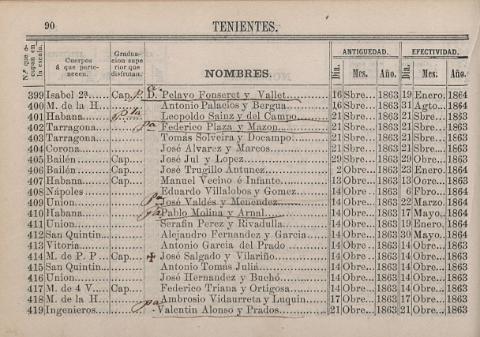 90 TENIENTES.
N.º que o-cupan en la escala. Cuerpos á que perte-necen. Gradua-cion supe rior que disfrutan. NOMBRES. ANTIGUEDAD. EFECTIVIDAD.
Dia. Mes. Año. Dia. Mes. Año.
399 Isabel 2ª. Cap. D. Pelayo Fonseret y Vallet. 16 Sbre. 1863 19 Enero. 1864
400 M. de la H. Antonio Palacios y Bergua. 16 Sbre. 1863 31 Agto. 1864
401 Habana Leopoldo Sainz y del Campo. 21 Sbre. 1863 21 Sbre. 1863
402 Tarragona pa Federico Plaza y Mazon. 21 Sbre. 1863 21 Sbre. 1863
403 Tarragona Tomás Solveira y Docampo. 21 Sbre. 1863 21 Sbre. 1863
404 Corona José Alvarez y Marcos. 21 Sbre. 1863 21 Sbre. 1863
405 Bailén Cap. José Jul y Lopez. 29 Sbre. 1863 29 Obre. 1863
406 Bailén Cap. José Trugillo Antunez. 2 Obre. 1863 23 Enero. 1864
407 Habana Cap. Manuel Vecino é Infante. 13 Obre. 1863 13 Obre. 1863
408 Nápoles Eduardo Villalobos y Gomez. 14 Obre. 1863 6 Fbro. 1864
409 Union pa José Valdés y Menendez. 14 Obre. 1863 22 Marzo. 1864
410 Habana pa Pablo Molina y Arnal. 14 Obre. 1863 17 Mayo. 1864
411 Union Serafin Perez y Rivadulla. 14 Obre. 1863 19 Enero. 1864
412 San Quintin Alejandro Fernandez y Garcia 14 Obre. 1863 30 Mayo. 1864
413 Vitoria Antonio Garcia del Prado 14 Obre. 1863 14 Obre. 1863
414 M. de P. P Cap. ✠ José Salgado y Vilariño. 14 Obre. 1863 14 Obre. 1863
415 San Quintin Antonio Tomás Juliá. 14 Obre. 1863 14 Obre. 1863
416 Union José Hernandez y Buchó. 14 Obre. 1863 14 Obre. 1863
417 M. de 4 V. Cap. Federico Triana y Ortigosa. 14 Obre. 1863 14 Obre. 1863
418 M. de la H. pa Ambrosio Vidaurreta y Luquin. 17 Obre. 1863 17 Obre. 1863
419 Ingenieros Valentin Alonso y Prados. 21 Obre. 1863 21 Obre. 1863